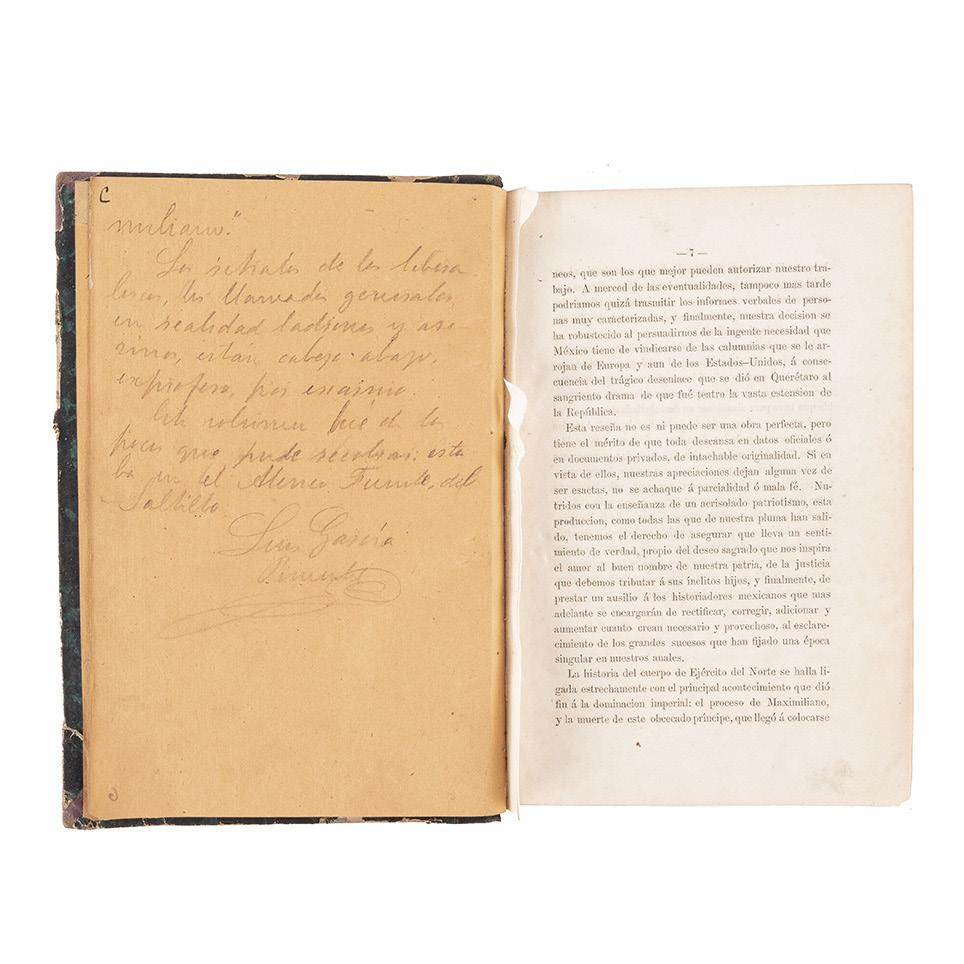 C
miliano."
Los retratos de los libera
lescos, los llamados generales,
en realidad ladrones y ase
sinos, están cabeza abajo,
exprofeso, por encargo
volumen fué de los
pocos que pude recobrar: esta
ba en el Ateneo Fuente, del
Saltillo
Luis García
Pimentel
—7—
neos, que son los que mejor pueden autorizar nuestro tra-
bajo. A merced de las eventualidades, tampoco mas tarde
podriamos quizá trasmitir los informes verbales de perso-
nas muy caracterizadas, y finalmente, nuestra decision se
ha robustecido al persuadirnos de la ingente necesidad que
México tiene de vindicarse de las calumnias que se le ar-
rojan de Europa y aun de los Estados-Unidos, á conse-
cuencia del trágico desenlace que se dió en Querétaro al
sangriento drama de que fué teatro la vasta estension de
la República.
Esta reseña no es ni puede ser una obra perfecta, pero
tiene el mérito de que toda descansa en datos oficiales ó
en documentos privados, de intachable originalidad. Si en
vista de ellos, nuestras apreciaciones dejan alguna vez de
ser exactas, no se achaque á parcialidad ó mala fé. Nu-
tridos con la enseñanza de un acrisolado patriotismo, esta
produccion, como todas las que de nuestra pluma han sali-
do, tenemos el derecho de asegurar que lleva un senti-
miento de verdad, propio del deseo sagrado que nos inspira
el amor al buen nombre de nuestra patria, de la justicia
que debemos tributar á sus ínclitos hijos, y finalmente, de
prestar un ausilio á los historiadores mexicanos que mas
adelante se encargarán de rectificar, corregir, adicionar y
aumentar cuanto crean necesario y provechoso, al esclare-
cimiento de los grandes sucesos que han fijado una época
singular en nuestros anales.
La historia del cuerpo de Ejército del Norte se halla li-
gada estrechamente con el principal acontecimiento que dió
fin á la dominacion imperial: el proceso de Maximiliano,
y la muerte de este obcecado príncipe, que llegó á colocarse